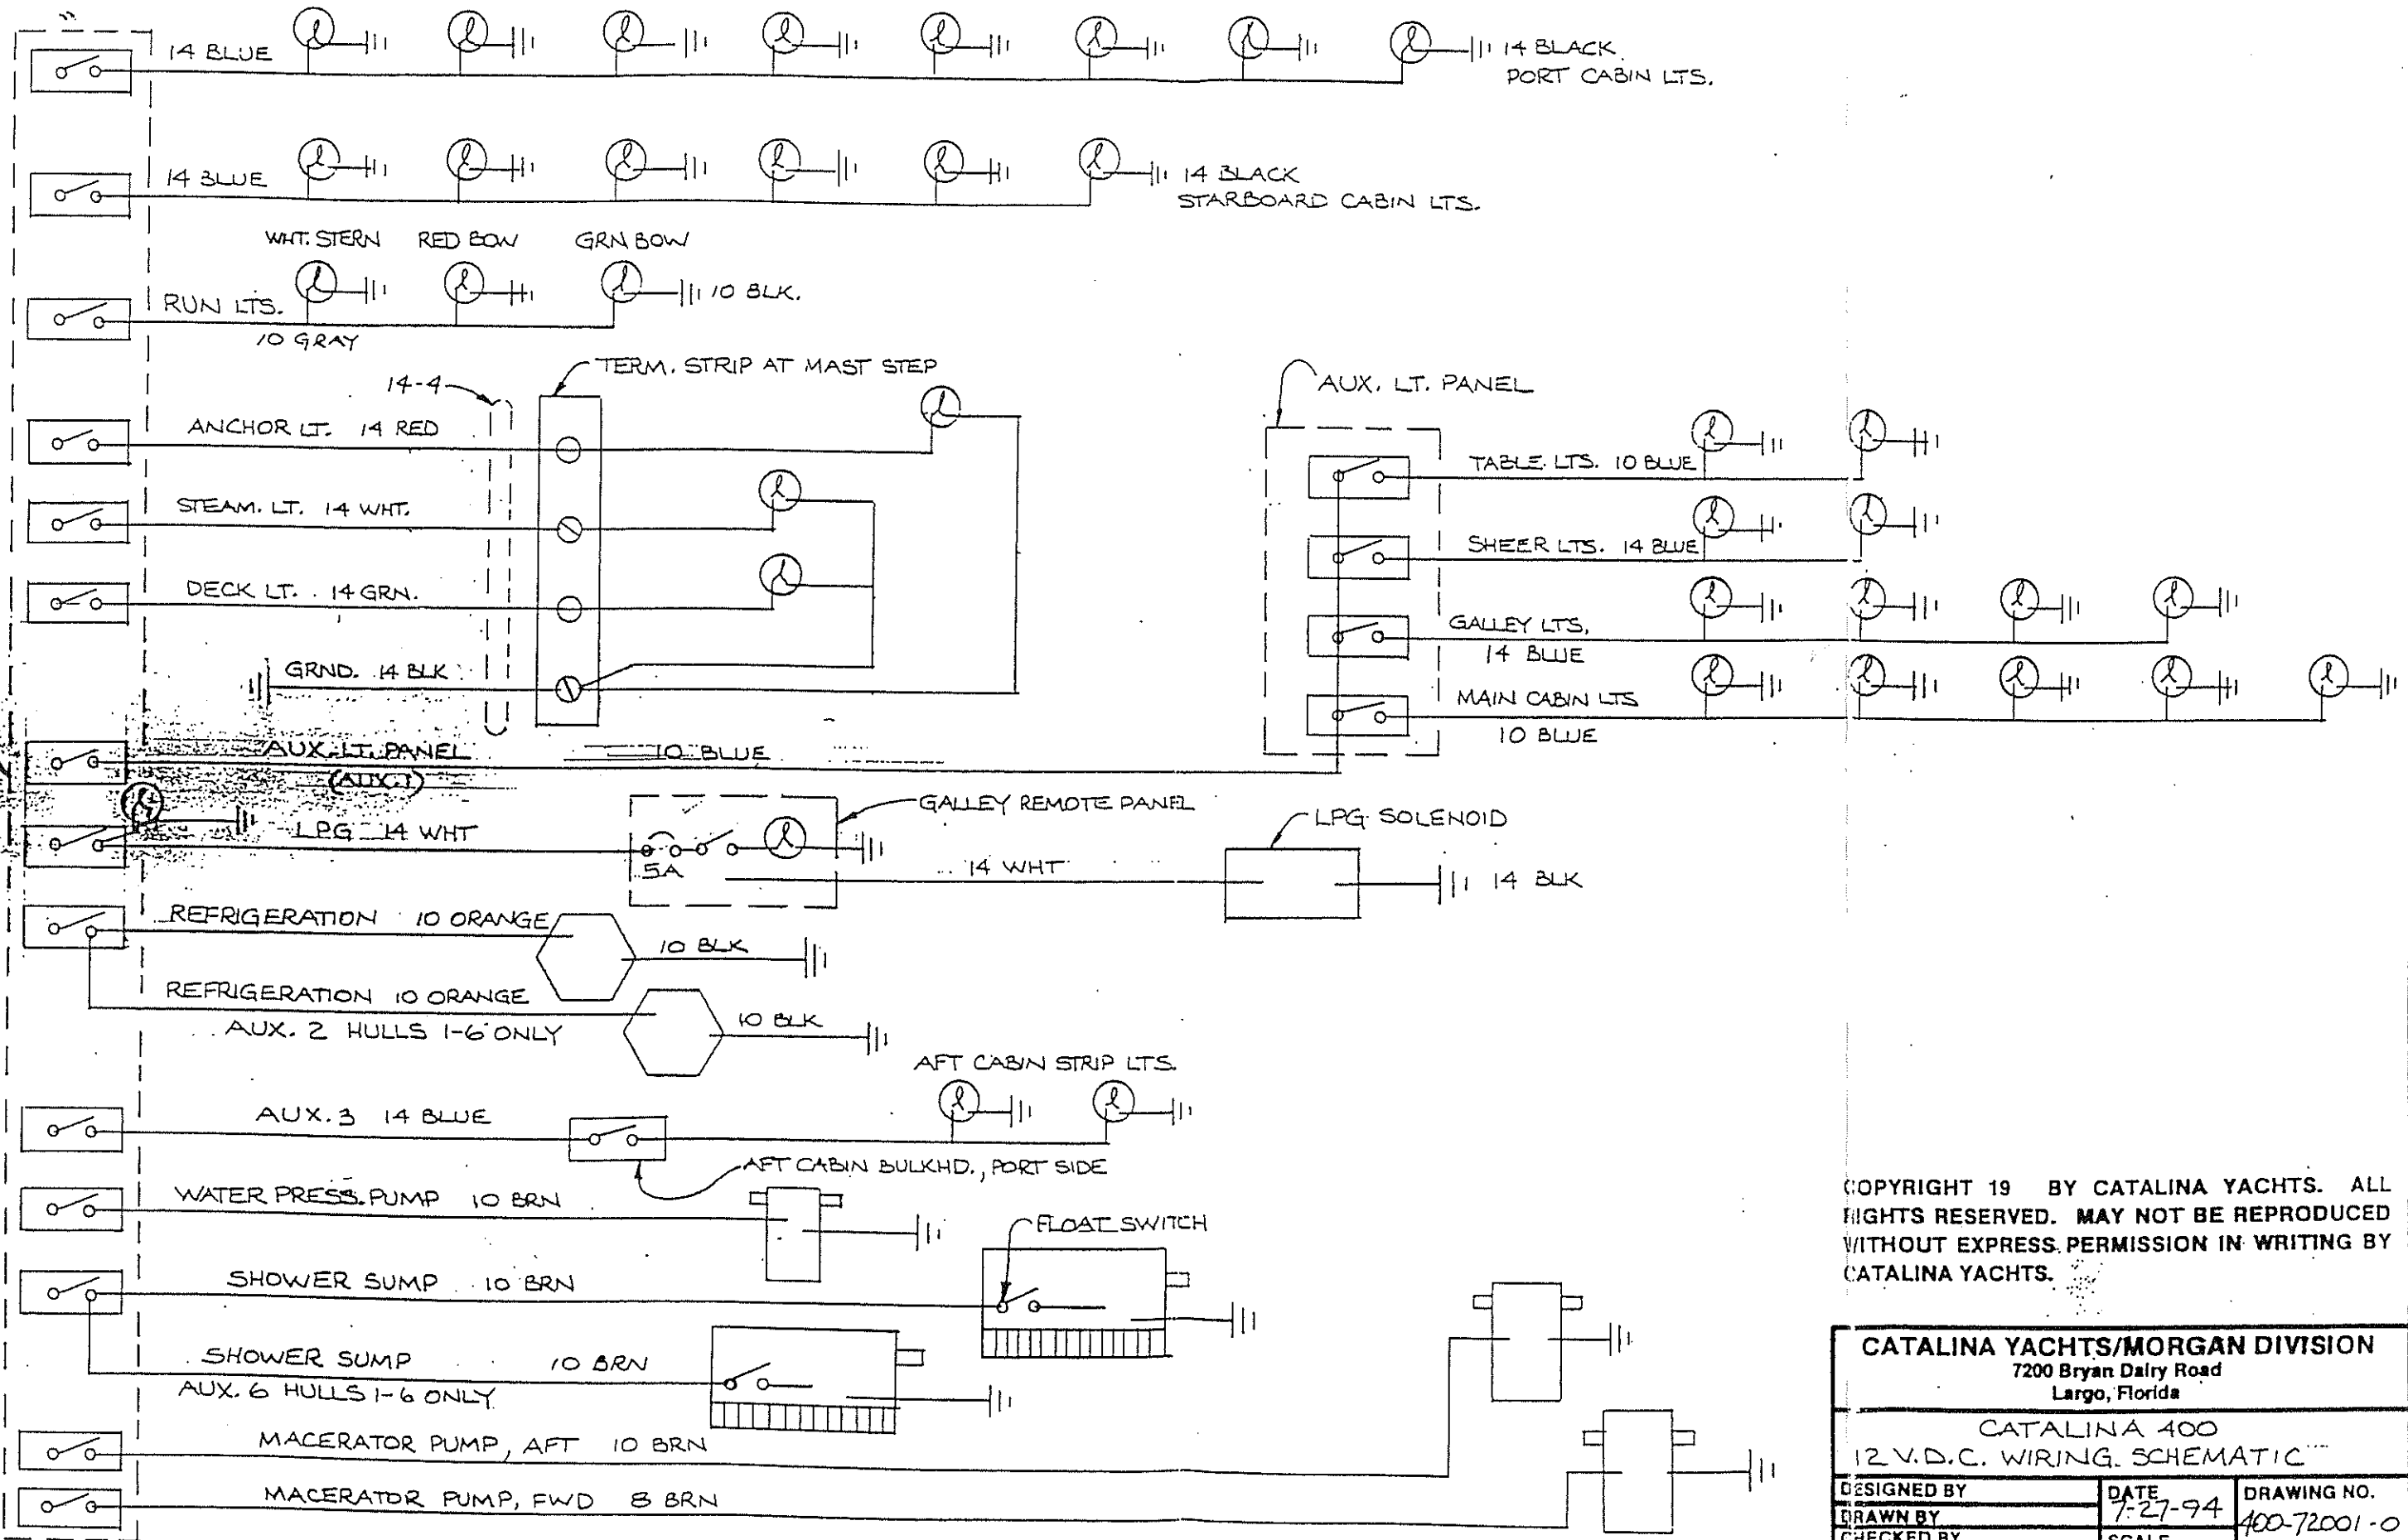 14 BLUE
14 BLACK
PORT CABIN LTS.
14 BLUE
14 BLACK
STARBOARD CABIN LTS.
WHT. STERN
RED BOW
GRN BOW
RUN LTS.
10 GRAY
10 BLK.
14-4
TERM. STRIP AT MAST STEP
ANCHOR LT. 14 RED
STEAM. LT. 14 WHT.
DECK LT. 14 GRN.
GRND. 14 BLK
AUX. LT. PANEL
TABLE LTS. 10 BLUE
SHEER LTS. 14 BLUE
GALLEY LTS.
14 BLUE
MAIN CABIN LTS
10 BLUE
AUX. LT. PANEL 10 BLUE
(AUX. 1)
LPG 14 WHT
5A
GALLEY REMOTE PANEL
14 WHT
LPG SOLENOID
14 BLK
REFRIGERATION 10 ORANGE
10 BLK
REFRIGERATION 10 ORANGE
AUX. 2 HULLS 1-6 ONLY
10 BLK
AUX. 3 14 BLUE
AFT CABIN STRIP LTS.
AFT CABIN BULKHD., PORT SIDE
WATER PRESS. PUMP 10 BRN
FLOAT SWITCH
SHOWER SUMP 10 BRN
SHOWER SUMP 10 BRN
AUX. 6 HULLS 1-6 ONLY
MACERATOR PUMP, AFT 10 BRN
MACERATOR PUMP, FWD 8 BRN
COPYRIGHT 19 BY CATALINA YACHTS. ALL
RIGHTS RESERVED. MAY NOT BE REPRODUCED
WITHOUT EXPRESS PERMISSION IN WRITING BY
CATALINA YACHTS.
CATALINA YACHTS/MORGAN DIVISION
7200 Bryan Dairy Road
Largo, Florida
CATALINA 400
12 V.D.C. WIRING SCHEMATIC
DESIGNED BY
DRAWN BY
CHECKED BY
DATE
7-27-94
SCALE
DRAWING NO.
400-72001-0